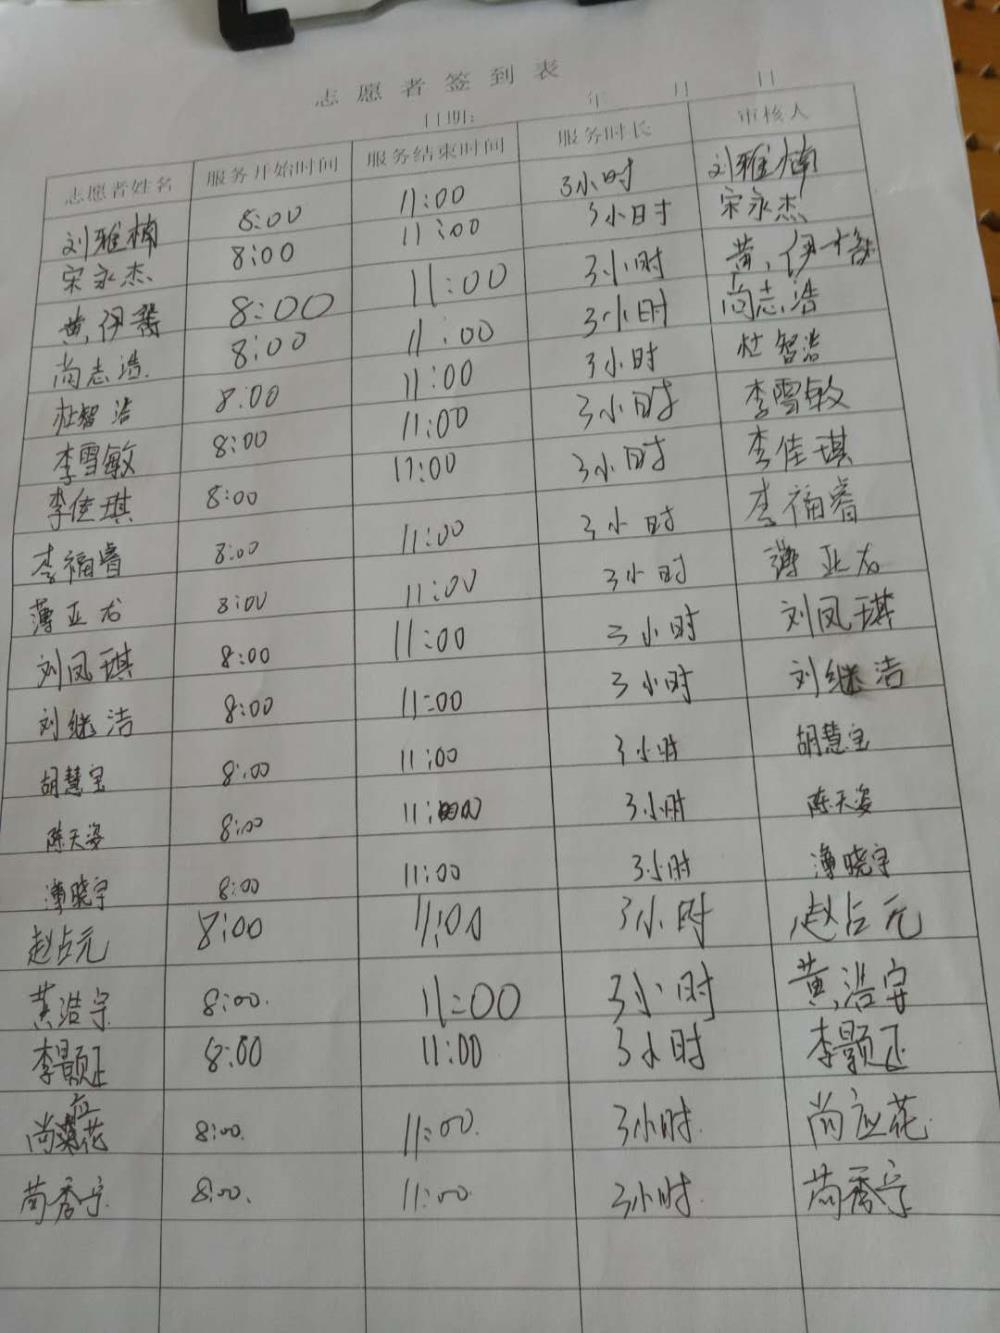 志愿者签到表
日期: 年 月 日
志愿者姓名 服务开始时间 服务结束时间 服务时长 审核人
刘雅楠 8:00 11:00 3小时 刘雅楠
宋永杰 8:00 11:00 3小时 宋永杰
黄伊 8:00 11:00 3小时 黄伊
尚志浩 8:00 11:00 3小时 尚志浩
杜智浩 8:00 11:00 3小时 杜智浩
李雪敏 8:00 11:00 3小时 李雪敏
李佳琪 8:00 11:00 3小时 李佳琪
李福睿 8:00 11:00 3小时 李福睿
薄亚龙 8:00 11:00 3小时 薄亚龙
刘凤琪 8:00 11:00 3小时 刘凤琪
刘继洁 8:00 11:00 3小时 刘继洁
胡慧宝 8:00 11:00 3小时 胡慧宝
陈天姿 8:00 11:00 3小时 陈天姿
薄晓宇 8:00 11:00 3小时 薄晓宇
赵占元 8:00 11:00 3小时 赵占元
黄浩宇 8:00. 11:00 3小时 黄浩宇
李颢正 8:00 11:00 3小时 李颢正
尚应花 8:00. 11:00. 3小时. 尚应花
苘秀宁 8:00. 11:00 3小时. 苘秀宁